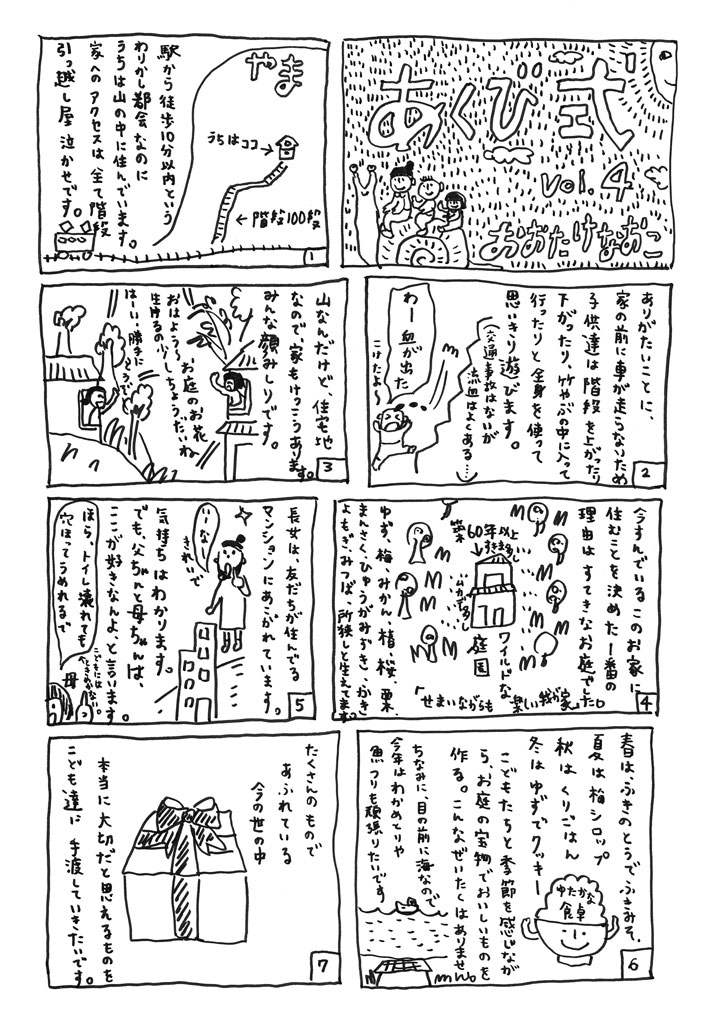 あくび式
vol.4
おおたけなおこ
やま
うちはココ→
←階段100段
駅から徒歩10分以内という
わりかし都会なのに
うちは山の中に住んでいます。
家へのアクセスは全て階段
引っ越し屋泣かせです。
1
ありがたいことに、
家の前に車が走らないため
子供達は階段を上がったり
下がったり、竹やぶの中に入って
行ったりと全身を使って
思いきり遊びます。
(交通事故はないが
流血はよくある…)
わー血が出た
こけたよ〜
2
山なんだけど、住宅地
なので家もけっこうあります。
みんな顔みしりです。
お庭のお花
おはよう〜
生けるの少しちょうだいね
はーい勝手に
どうぞ〜
3
今すんでいるこのお家に
住むことを決めた一番の
理由はすてきなお庭でした。
築
60年以上
すきま多し
ムカデ多し
ワイルドな
庭園
「せまいながらも楽しい我が家」
ゆず、梅、みかん、椿、桜、栗、
まんさく、ひゅうがみずき、かき
よもぎ、みつば、所狭しと生えてます。
4
長女は、友だちが住んでる
マンションにあこがれています。
いーなー
きれいで
気持ちはわかります。
でも、父ちゃんと母ちゃんは、
ここが好きなんよ、と言います。
ほら、トイレ壊れても
穴ほってうめれるで
母
こどもには
ときめかない。
5
春は、ふきのとうでふきみそ、
夏は梅シロップ
秋はくりごはん
冬はゆずでクッキー
こどもたちと季節を感じなが
ら、お庭の宝物でおいしいものを
作る。こんなぜいたくはありません。
ゆたかな
食卓
ちなみに、目の前に海なので
今年はわかめとりや
魚つりも頑張りたいです
6
たくさんのもので
あふれている
今の世の中
本当に大切だと思えるものを
こども達に手渡していきたいです。
7